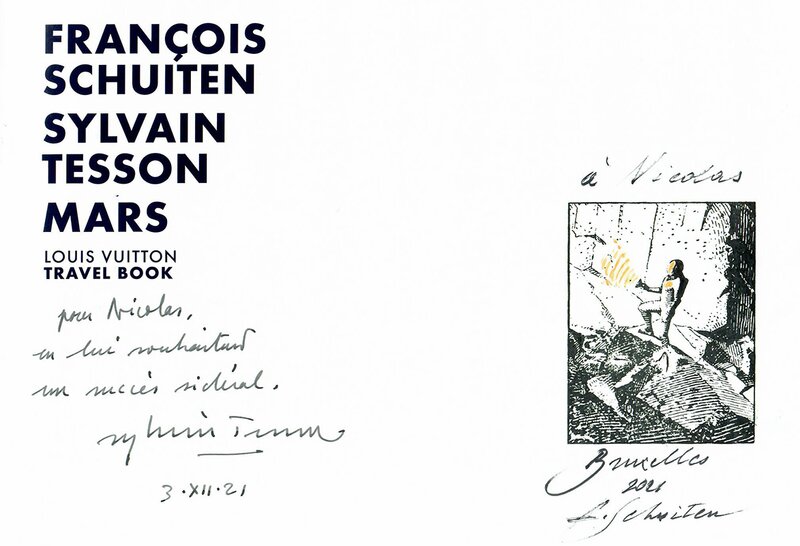 FRANÇOIS
SCHUITEN
SYLVAIN
TESSON
MARS
LOUIS VUITTON
TRAVEL BOOK
pour Nicolas,
en lui souhaitant
un succès sidéral.
Sylvain Tesson
3.XII.21
à Nicolas
Bruxelles
2021
F. Schuiten